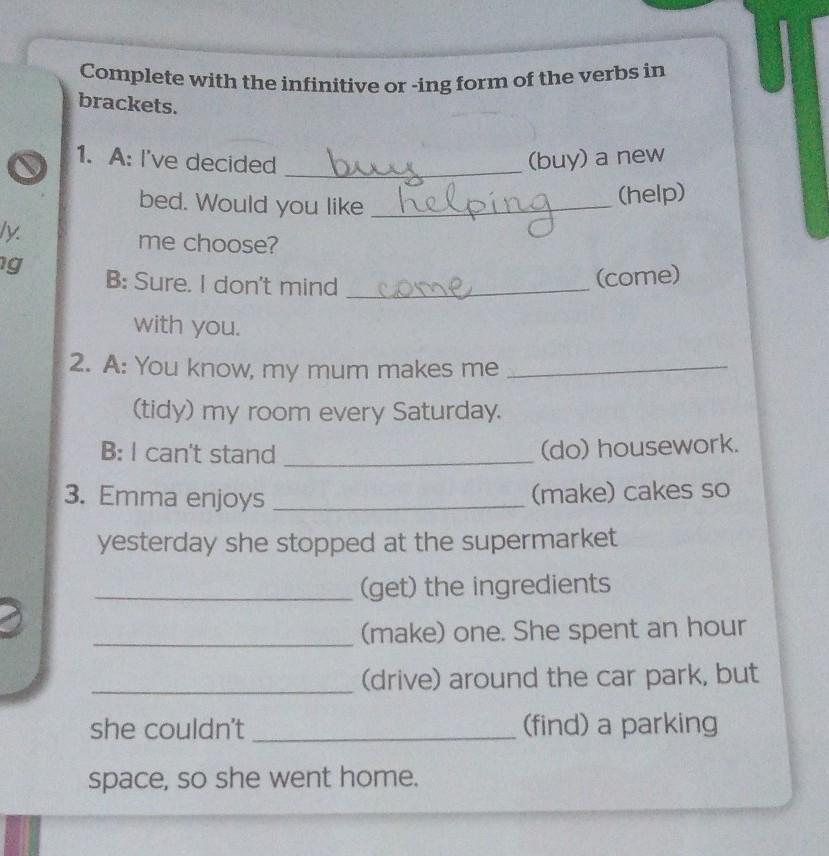 Complete with the infinitive or -ing form of the verbs in
brackets.
1. A: I've decided buy (buy) a new
bed. Would you like helping (help)
ly.
me choose?
ng
B: Sure. I don't mind come (come)
with you.
2. A: You know, my mum makes me ____
(tidy) my room every Saturday.
B: I can't stand ____ (do) housework.
3. Emma enjoys ____ (make) cakes so
yesterday she stopped at the supermarket
____ (get) the ingredients
____ (make) one. She spent an hour
____ (drive) around the car park, but
she couldn't ____ (find) a parking
space, so she went home.